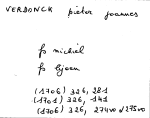 VERDONCK pieter joannes
fs michiel
fs Ljeen
(1706) 326, 281
(1701) 326, 141
(1706) 326, 274vo